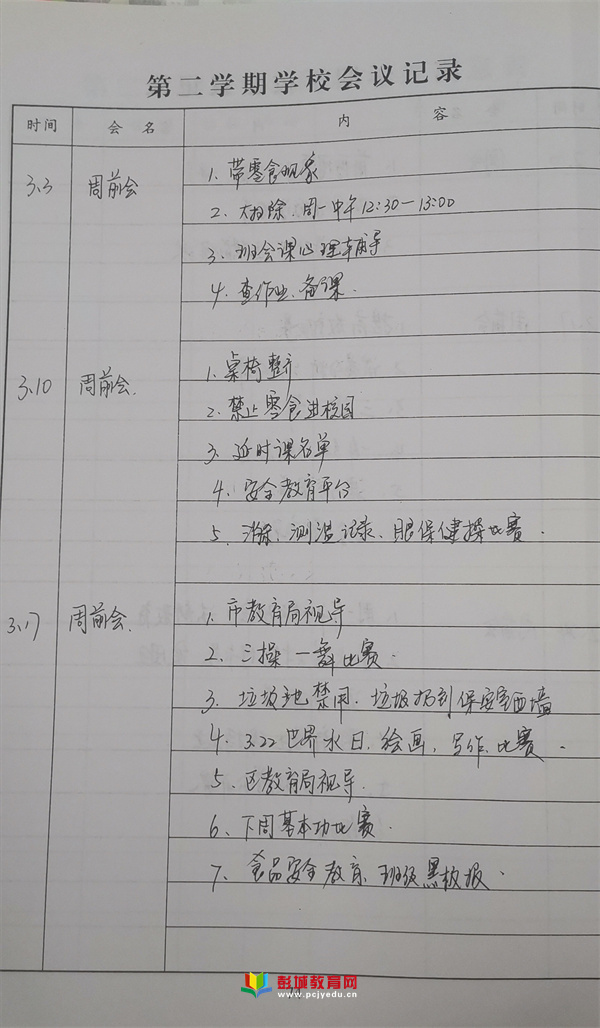 第二学期学校会议记录
时间 会名 内容
3.3 周前会 1. 带零食现象
2. 大扫除. 周一中午12:30—13:00
3. 班会课心理辅导
4. 查作业、备课.
3.10 周前会. 1. 桌椅整齐
2. 禁止零食进校园
3. 延时课名单
4. 安全教育平台
5. 消杀、测温记录、眼保健操比赛.
3.17 周前会. 1. 市教育局视导
2. 三操一舞比赛.
3. 垃圾池禁用. 垃圾扔到保安室西墙
4. 3.22世界水日. 绘画, 写作比赛.
5. 区教育局视导.
6. 下周基本功比赛.
7. 食品安全教育、班级黑板报.
彭城教育网
www.pcjyedu.cn